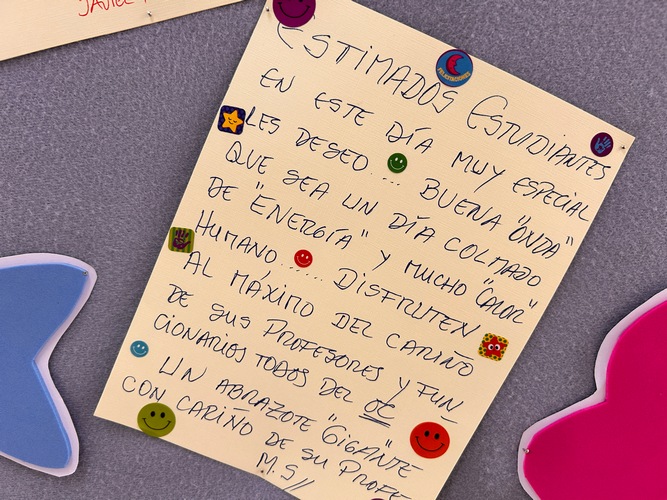 JAVIE
ESTIMADOS ESTUDIANTES
FELICITACIONES
EN ESTE DÍA MUY ESPECIAL
LES DESEO.... BUENA "ONDA"
QUE SEA UN DÍA COLMADO
DE "ENERGÍA" Y MUCHO "CALOR"
HUMANO...... DISFRUTEN
AL MÁXIMO DEL CARIÑO
DE SUS PROFESORES Y FUN_
CIONARIOS TODOS DEL OC
UN ABRAZOTE "GIGANTE"
CON CARIÑO DE SU PROFE
M.S//